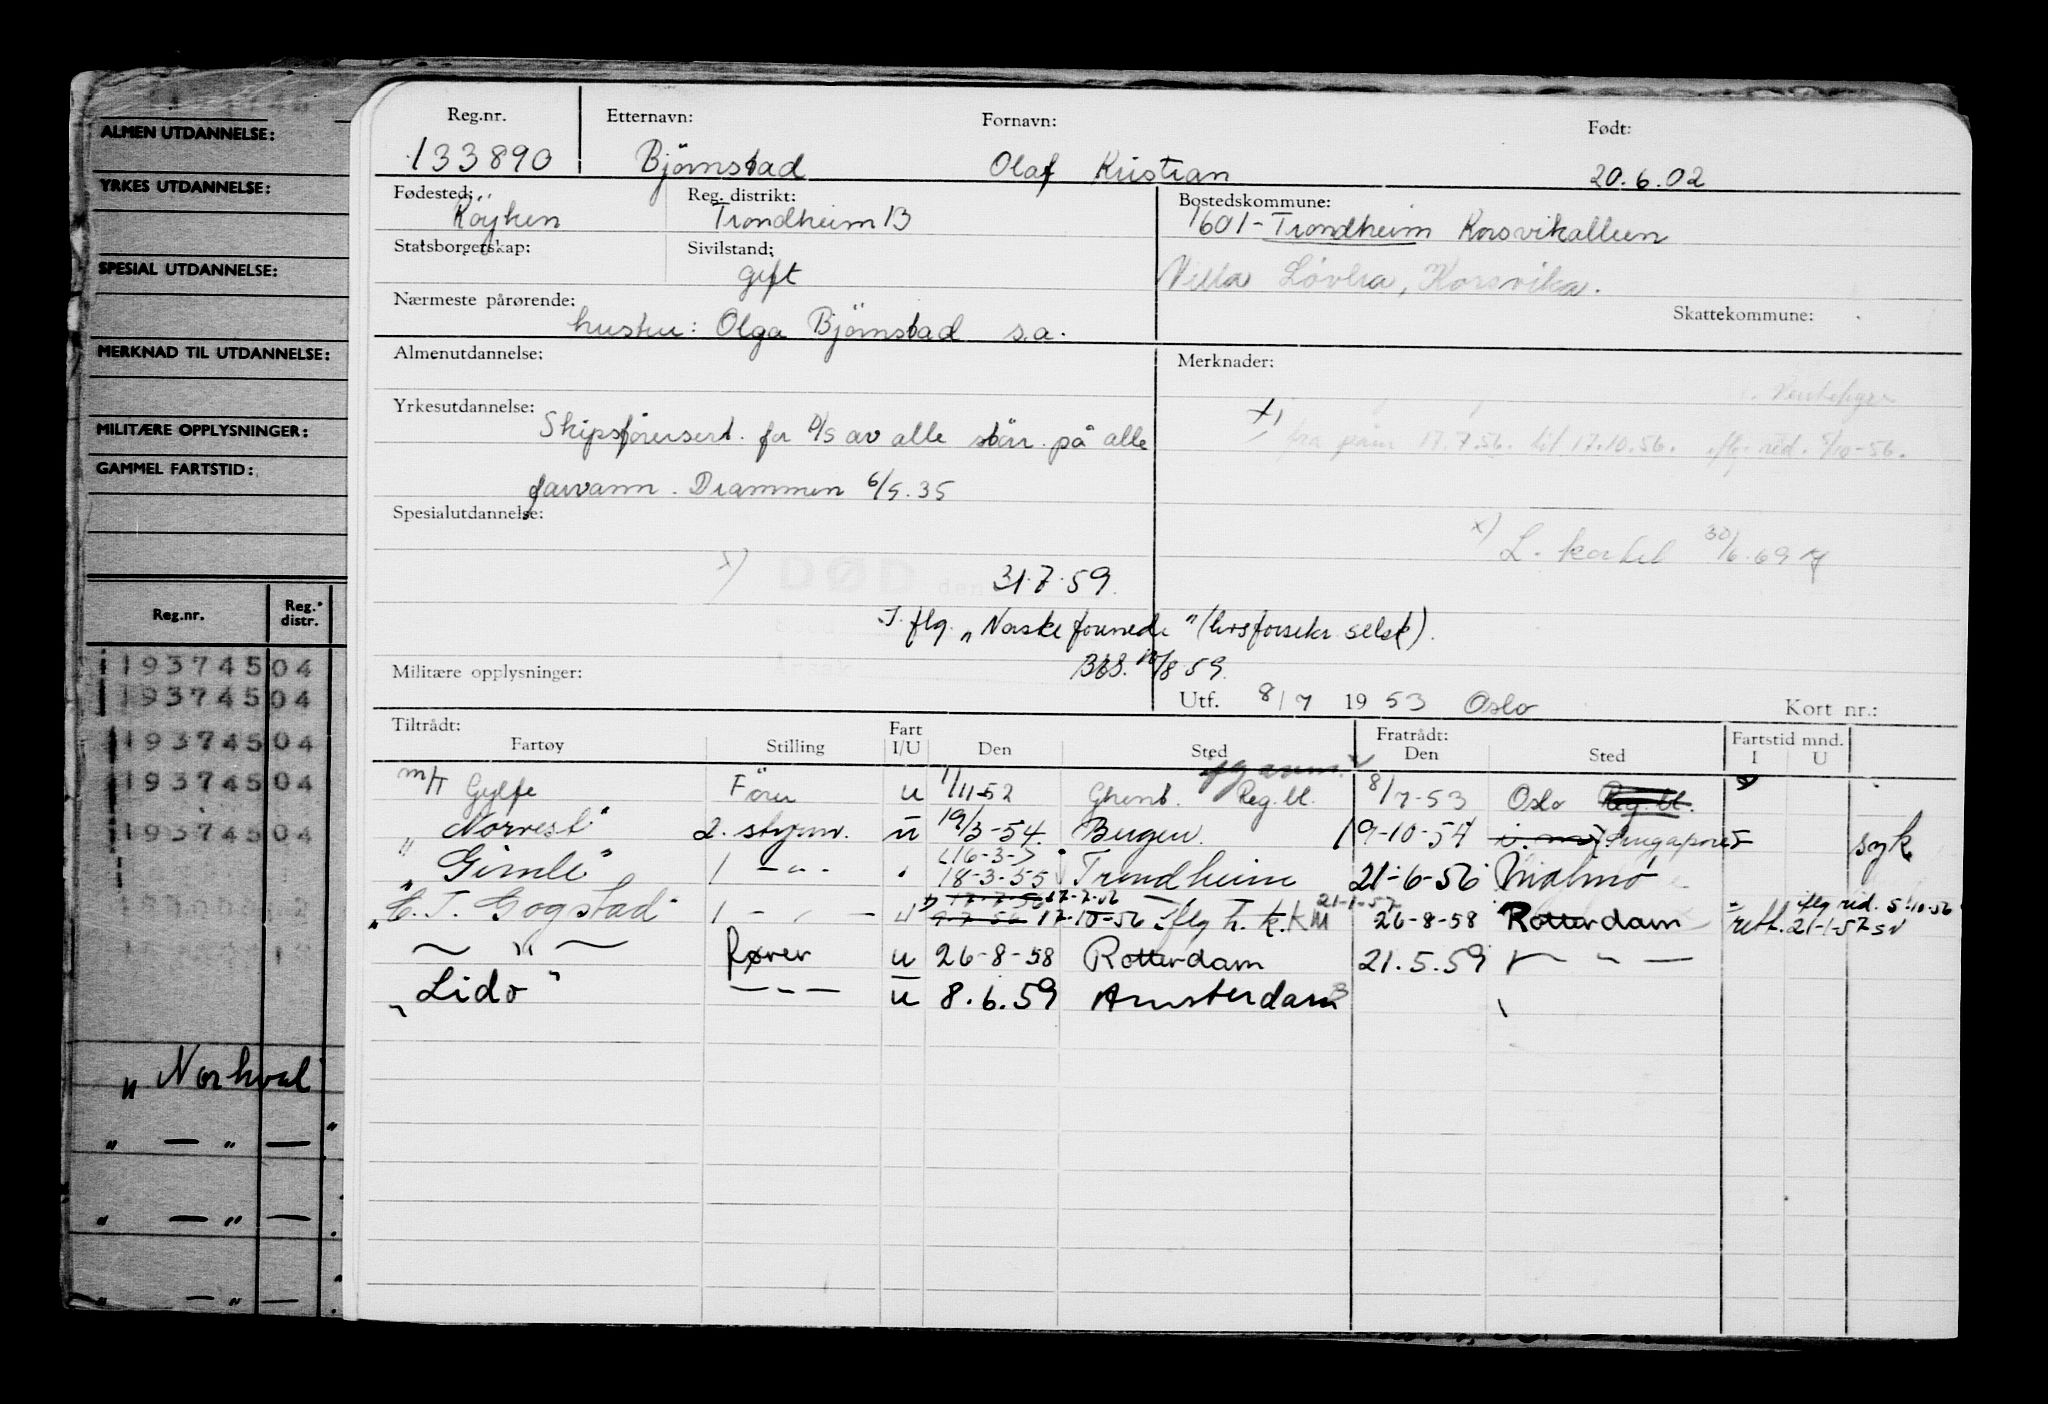 ALMEN UTDANNELSE:
YRKES UTDANNELSE:
SPESIAL UTDANNELSE:
MERKNAD TIL UTDANNELSE:
MILITÆRE OPPLYSNINGER:
GAMMEL FARTSTID:
Reg.nr. Reg. distr.
1937450 04
1937450 04
1937450 04
1937450 04
1937450 04
" Norhval
" — " —
" — " —
" — " —
Reg.nr. Etternavn: Fornavn: Født:
133890 Björnstad Olaf Kristian 20.6.02
Fødested: Reg. distrikt: Bostedskommune:
Röyken Trondheim B 1601 - Trondheim Korsvikalleen
Statsborgerskap: Sivilstand:
gift Villa Løvlia, Korsvika.
Nærmeste pårørende: Skattekommune:
hustru: Olga Björnstad s.a.
Almenutdannelse: Merknader:
Yrkesutdannelse: x)
Skipsförersert. for D/S av alle störr. på alle fra 17.7.56. til 17.10.56. iflg. red. 5/10-56.
farvann. Drammen 6/5.35
Spesialutdannelse:
x) L. kartel 30/6.69
x) DØD den 31.7.59
I. flg. "Norske forenede" (livsforsikr. selsk).
18/8 59.
Militære opplysninger:
Utf. 8/7 1953 Oslo Kort nr.:
Tiltrådt: Fratrådt: Fartstid mnd.
Fartøy Stilling Fart I/U Den Sted Den Sted I U
m/T Gylfe Förer u 1/11-52 Ghent. Reg. bl. 8/7-53 Oslo Reg. bl.
" Norvest" 2. styrm. u 19/3-54. Bergen. 19-10-54 Singapore syk
16-3-
" Gimle" 1 — " — " 18-3-55 Trondheim 21-6-56 Malmö
17-7-56 17-7-56 21-1-57 iflg red. 5-10-56
" C. T. Gogstad" 1 — " — u 9-7-56 17-10-56 iflg h. k. KM 26-8-58 Rotterdam rett. 21-1-57 sv
— " — Fører u 26-8-58 Rotterdam 21.5.59 — " —
" Lido" — " — u 8.6.59 Amsterdam